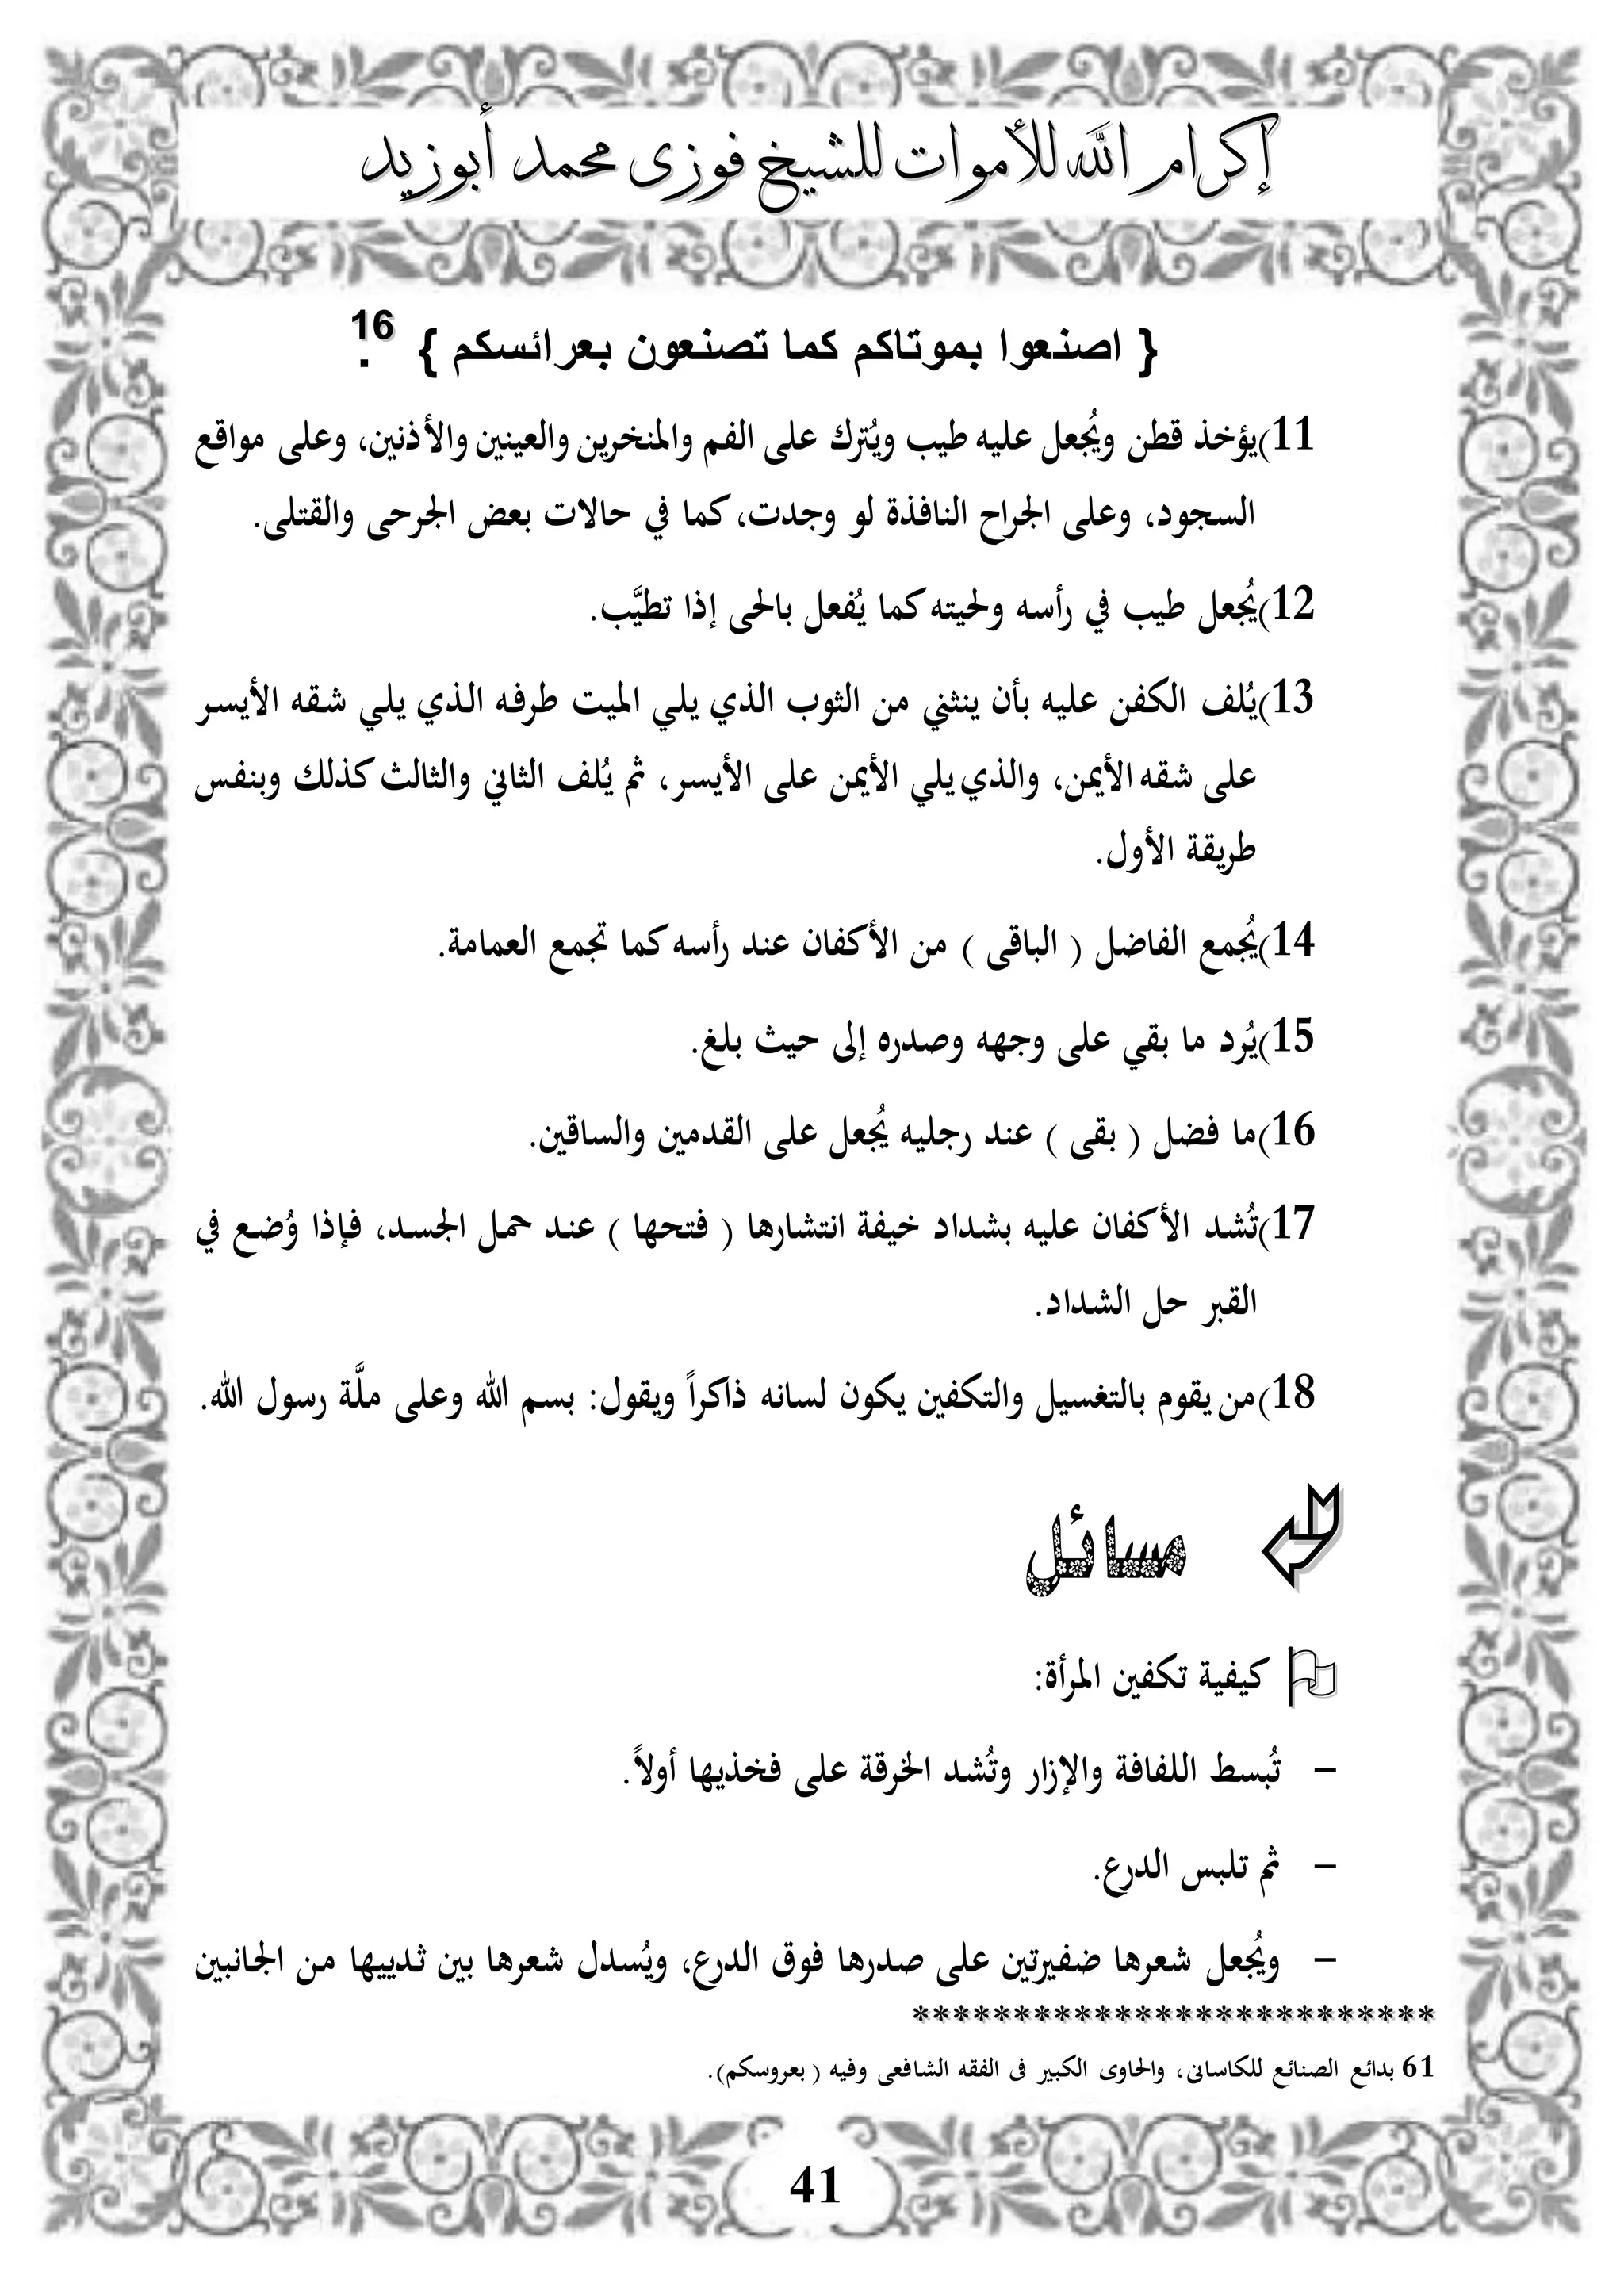 إكرام الله للأموات للشيخ فوزى محمد أبوزيد
{ اصنعوا بموتاكم كما تصنعون بعرائسكم } 16.
11)يؤخذ قطن ويُجعل عليه طيب ويُترك على الفم والمنخرين والعينين والأذنين، وعلى مواقع
السجود، وعلى الجراح النافذة لو وجدت، كما في حالات بعض الجرحى والقتلى.
12)يُجعل طيب في رأسه ولحيته كما يُفعل بالحى إذا تطيَّب.
13)يُلف الكفن عليه بأن ينثني من الثوب الذي يلي الميت طرفه الذي يلي شقه الأيسر
على شقه الأيمن، والذي يلي الأيمن على الأيسر، ثم يُلف الثاني والثالث كذلك وبنفس
طريقة الأول.
14)يُجمع الفاضل ( الباقى ) من الأكفان عند رأسه كما تجمع العمامة.
15)يُرد ما بقي على وجهه وصدره إلى حيث بلغ.
16)ما فضل ( بقى ) عند رجليه يُجعل على القدمين والساقين.
17)تُشد الأكفان عليه بشداد خيفة انتشارها ( فتحها ) عند حمل الجسد، فإذا وُضع في
القبر حل الشداد.
18)من يقوم بالتغسيل والتكفين يكون لسانه ذاكراً ويقول: بسم الله وعلى ملَّة رسول الله.
مسائل
كيفية تكفين المرأة:
- تُبسط اللفافة والإزار وتُشد الخرقة على فخذيها أولاً.
- ثم تلبس الدرع.
- ويُجعل شعرها ضفيرتين على صدرها فوق الدرع، ويُسدل شعرها بين ثدييها من الجانبين
**************************
61 بدائع الصنائع للكاسانى، والحاوى الكبير فى الفقه الشافعى وفيه ( بعروسكم).
41